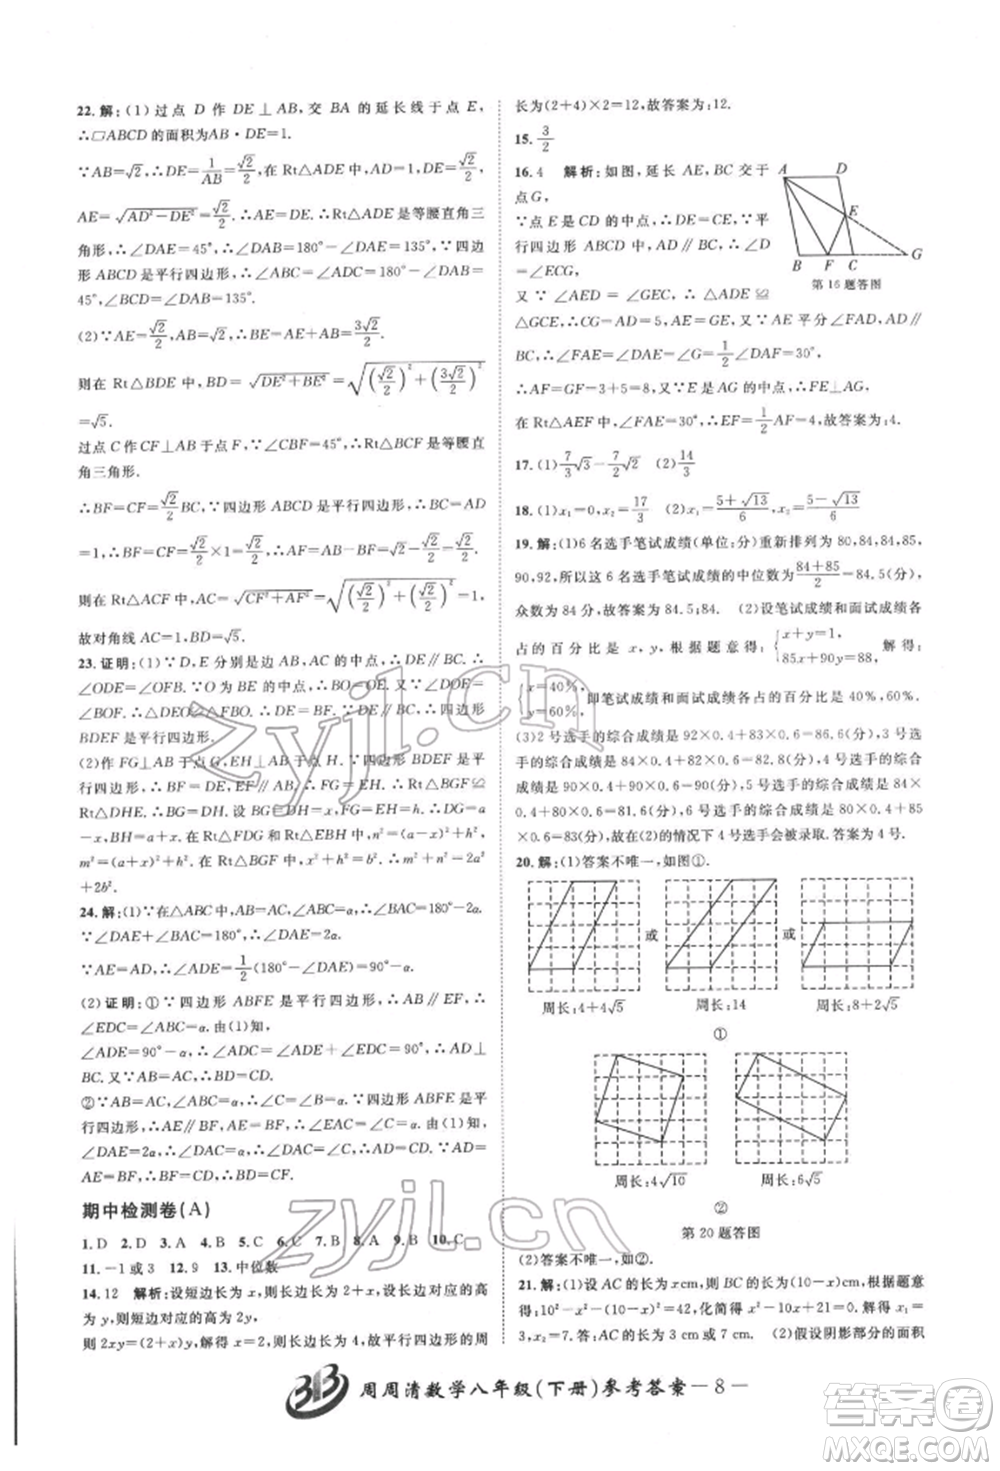 22.解:(1)过点 D 作 DE⊥AB,交 BA 的延长线于点 E,
∴▱ABCD 的面积为AB·DE=1.
∵AB=√2,∴DE=1/AB=√2/2.∵在 Rt△ADE 中,AD=1,∴
AE=√(AD²-DE²)=√2/2.∴DE=AE.∴Rt△ADE 是等腰直角三
角形,∴∠DAE=45°,∴∠DAB=180°-∠DAE=135°,∵四边
形 ABCD 是平行四边形,∴∠ABC=∠CDA=180°-∠BAD=
45°,∠BCD=∠DAB=135°.
(2)∵AE=√2/2,AB=√2,∴BE=AE+AB=3√2/2,
则在 Rt△BDE 中,BD=√(DE²+BE²)=√((√2/2)²+(3√2/2)²)
=√5.
过点 C 作 CF⊥AB 于点 F,∵∠CBF=45°,∴Rt△BCF 是等腰直
角三角形.
∴BF=CF=√2/2 BC,∵四边形 ABCD 是平行四边形,∴BC=AD
=1,∴BF=CF=√2/2×1=√2/2,∴AF=AB-BF=√2-√2/2=√2/2,
在 Rt△ACF 中,AC=√(CF²+AF²)=√((√2/2)²+(√2/2)²)=1,
故对角线 AC=1,BD=√5.
23.证明:(1)∵D,E 分别是边 AB,AC 的中点,∴DE∥BC,∴
∠ODE=∠OFB,∵在 DF 的中点O处,∴BO=OE.又∵∠EOD=
∠BOF.∴△DEO≌△BFO.∴DE=BF.又∵DE∥BF,∴四边形
BDEF 是平行四边形.
(2)作 FG⊥AB 于点 G,EH⊥AB 于点 H.∵四边形 BDEF 是平行四边形,∴Rt△BGF≌
Rt△DHE.∴BG=DH.设 BG=DH=x,FG=EH=h,则 DG=a
-x,BH=a+x.在 Rt△FDG 和 Rt△EBH 中,n²=(a-x)²+h²,
m²=(a+x)²+h².在 Rt△BGF 中,b²=x²+h²,∴m²+n²=2a²
+2b².
24.解:(1)∵在△ABC 中,AB=AC,∠ABC=α,∴∠BAC=180°-2
α.∵∠DAE+∠BAC=180°,∴∠DAE=2α,∵AE=AD,∴
∠ADE=1/2(180°-∠DAE)=90°-α.
(2)证明:①∵四边形 ABFE 是平行四边形,∴AB∥EF,∴
∠EDC=∠ABC=α.由(1)知,
∠ADE=90°-α,∴∠ADC=∠ADE+∠EDC=90°,∴AD⊥
BC.∵AB=AC,∴BD=CD.
②∵AB=AC,∠ABC=α,∴∠C=α.∵四边形 ABFE 是平行四
边形,∴AE∥BF,AE=BF.∴∠EAC=∠C=α.由(1)知,
∠DAE=2α,∴∠DAC=α,∴∠DAC=∠C.∴AD=CD.∵AD=
AE=BF,∴BF=CD.∴BD=CF.
期中检测卷(A)
1.D 2.D 3.A 4.B 5.C 6.C 7.B 8.A 9.B 10.C
11.-1或3 12.9 13.中位数
14.12 解析:设短边长为 x,则长边长为 2+x,设长边对应的高
为 y,则短边对应的高为 2y,
则 2xy=(2+x)y,解得 x=2,则长边长为 4,故平行四边形的周
长为(2+4)×2=12,故答案为:12.
15.3/2
16.4 解析:如图,延长 AE,BC 交于
点 G,
∵点 E 是 CD 的中点,∴DE=CE,∵平
行四边形 ABCD 中,AD∥BC,∴∠D
=∠ECG,
又∵∠AED=∠GEC,∴△ADE≌
△GCE,∴CG=AD=5,AE=GE,又∵AE 平分∠FAD,AD∥
BC,∴∠FAE=∠DAE=∠G=1/2∠DAF=30°,
∴AF=GF=3+5=8,又∵E 是 AG 的中点,∴FE⊥AG,
在 Rt△AEF 中,∠FAE=30°,∴EF=1/2AF=4,故答案为:4.
A D E B F C G
第16题答图
17.(1)7/3√3-7/2√2 (2)14/3
18.(1)x₁=0,x₂=17/3 (2)x₁=(5+√13)/6,x₂=(5-√13)/6
19.解:(1)6名选手笔试成绩(单位:分)重新排列为 80,84,84,85,
90,92,所以这 6 名选手笔试成绩的中位数是(84+85)/2=84.5(分),
众数为 84 分,故答案为 84.5;84. (2)设笔试成绩和面试成绩各
占的百分比是 x,y,根据题意得:{x+y=1, 85x+90y=88, 解得:
{x=40%, y=60%, 即笔试成绩和面试成绩各占的百分比是 40%,60%.
(3)2 号选手的综合成绩是 92×0.4+88×0.6=89.6(分),3 号选
手的综合成绩是 84×0.4+82×0.6=82.8(分),4 号选手的综合
成绩是 90×0.4+90×0.6=90(分),5 号选手的综合成绩是 84×0.
4+80×0.6=81.6(分),6 号选手的综合成绩是 80×0.4+85
×0.6=83(分),故(2)的情况下 4 号选手会被录取.答案为 4 号.
20.解:(1)答案不唯一,如图①.
或 或
周长:4+4√5 周长:14 周长:8+2√5
①
周长:4√10 周长:6√5
②
第20题答图
(2)答案不唯一,如图②.
21.解:(1)设 AC 的长为 x cm,则 BC 的长为(10-x)cm.根据题意
得:10²-x²-(10-x)²=42,化简得:x²-10x+21=0,解得 x₁=
3,x₂=7.答:AC 的长为 3 cm 或 7 cm. (2)假设阴影部分的面积
周周清数学八年级(下册)参考答案-8-
zyjl.cn
zyjl.cn
答案圈
MXQE.COM